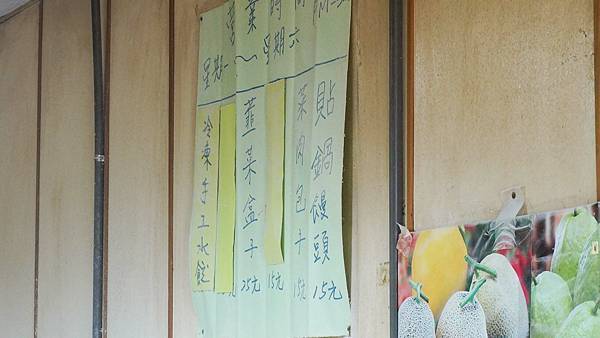 營業時間
星期一~星期六
貼鍋饅頭 15元
菜肉包子 15元
15元
韮菜盒子 25元
冷凍手工水餃